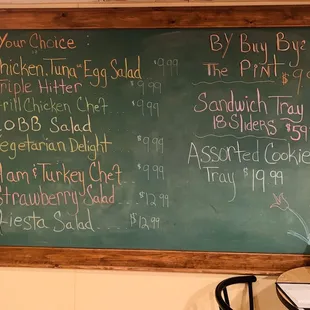 Your Choice :
Chicken Tuna Egg Salad $9.99
Triple Hitter $9.99
Grill Chicken Chef.. $9.99
COBB Salad
Vegetarian Delight $9.99
Ham & Turkey Chef.. $9.99
Strawberry Salad... $12.99
Fiesta Salad.... $12.99
BY Buy By
The Pint $9
Sandwich Tray
18 Sliders $59
Assorted Cookie
Tray $19.99